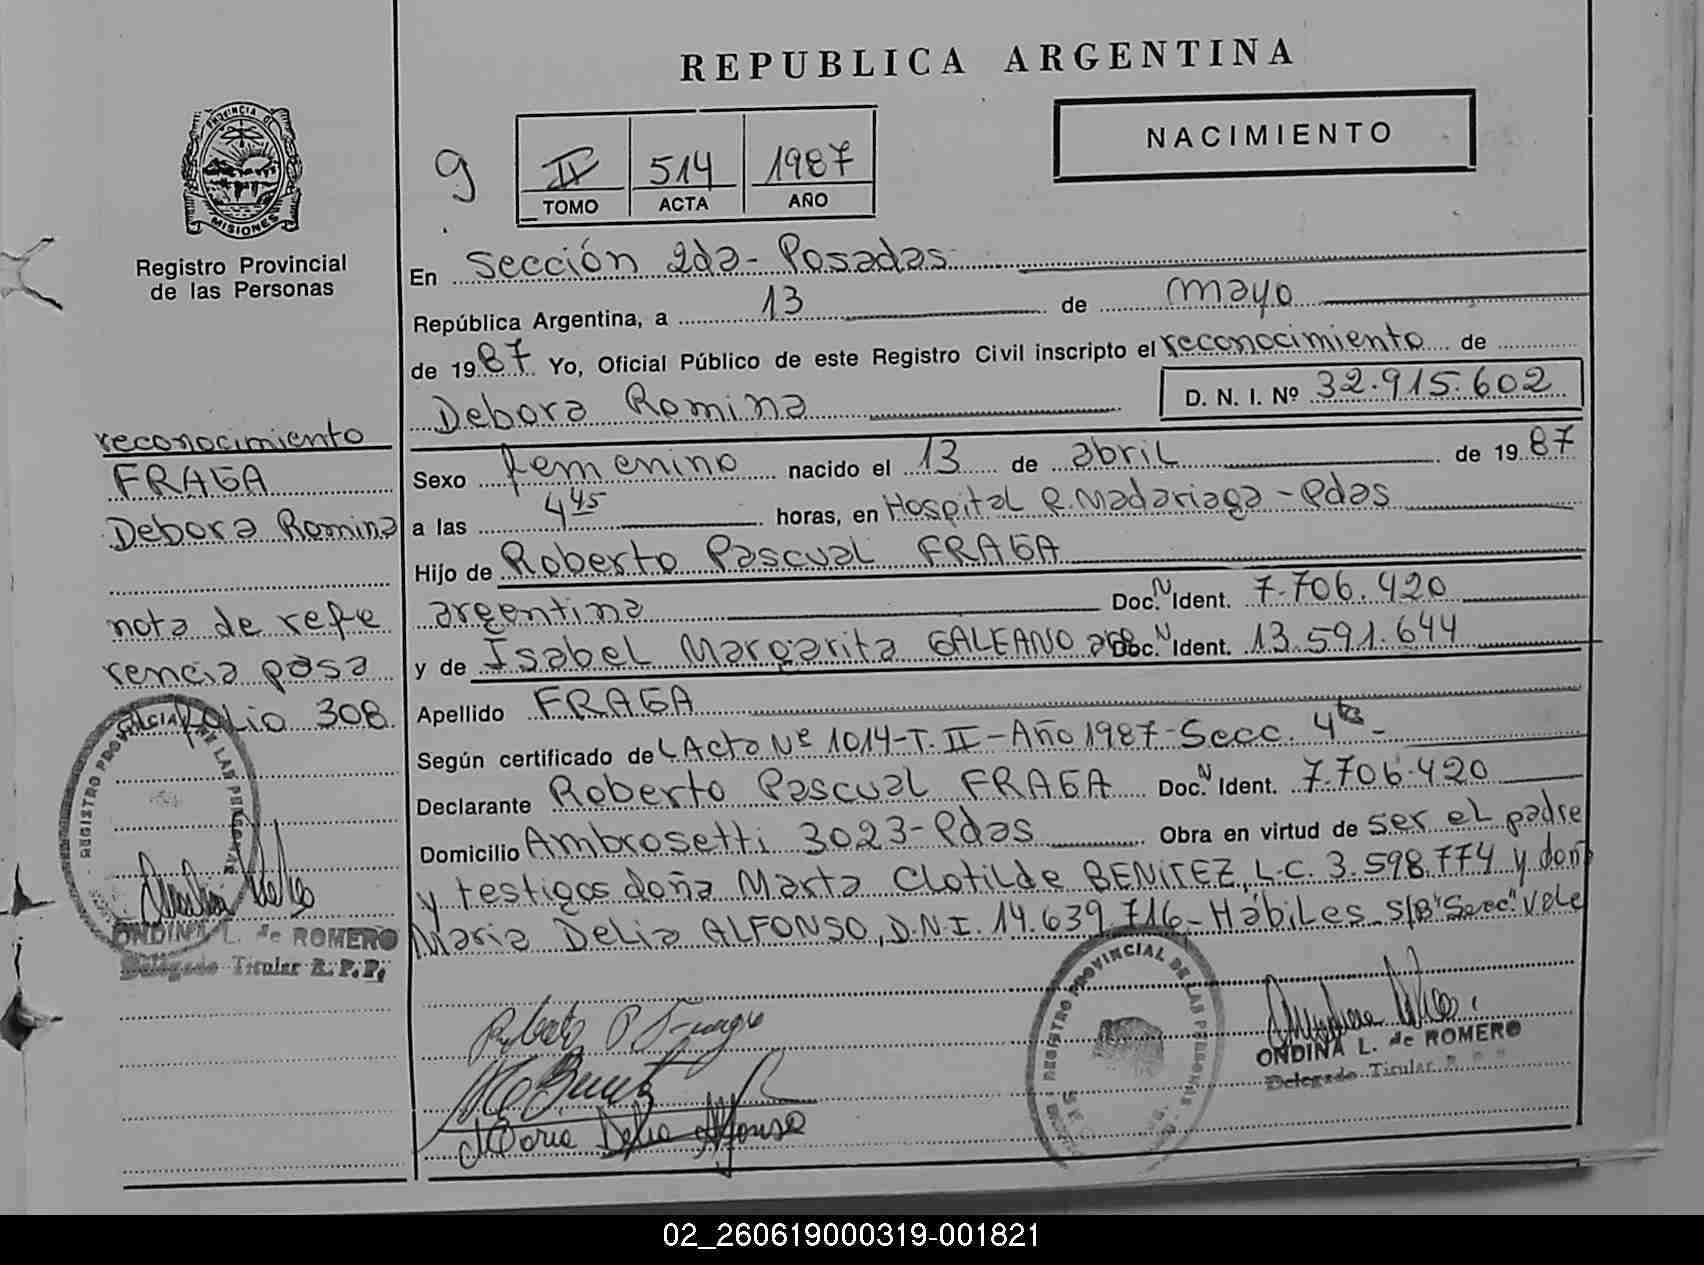 REPUBLICA ARGENTINA
NACIMIENTO
PROVINCIA DE
MISIONES
Registro Provincial
de las Personas
9
II 514 1987
TOMO ACTA AÑO
En Sección 2da- Posadas
República Argentina, a 13 de mayo
de 1987 Yo, Oficial Público de este Registro Civil inscripto el reconocimiento de
Debora Romina D. N. I. Nº 32.915.602
Sexo femenino nacido el 13 de abril de 1987
a las 4 45 horas, en Hospital R. Madariaga - Pdas
Hijo de Roberto Pascual FRAGA
argentina Doc. N Ident. 7.706.420
y de Isabel Margarita GALEANO arg Doc. N Ident. 13.591.644
Apellido FRAGA
Según certificado de L Acta Nº 1014-T. II - Año 1987- Secc. 4ta -
Declarante Roberto Pascual FRAGA Doc. N Ident. 7.706.420
Domicilio Ambrosetti 3023- Pdas Obra en virtud de ser el padre
y testigos doña Marta Clotilde BENITEZ, L.C. 3.598.774 y doña
Maria Delia ALFONSO, D.N.I. 14.639.716 - Hábiles S/B "Secc" Vale
reconocimiento
FRAGA
Debora Romina
nota de refe
rencia pasa
al folio 308
REGISTRO PROVINCIAL DE LAS PERSONAS
ONDINA L. de ROMERO
Delegado Titular R.P.P.
Maria Delia Alfonso
REGISTRO PROVINCIAL DE LAS PERSONAS
ONDINA L. de ROMERO
Delegado Titular R.P.P.
02_260619000319-001821